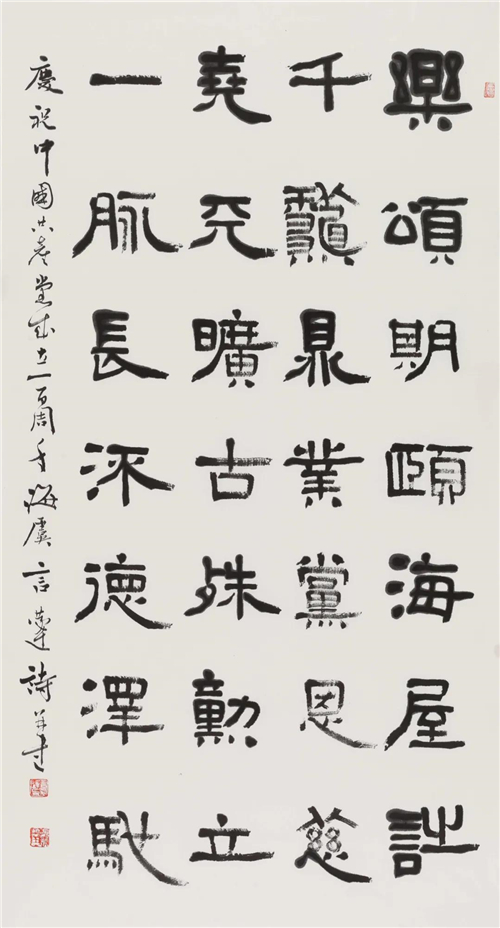 樂頌期頤海屋詩
千龝鼎業黨恩慈
堯天曠古殊勳立
一脈長流德澤馳
慶祝中國共產黨成立一百周年海虞言達詩并書